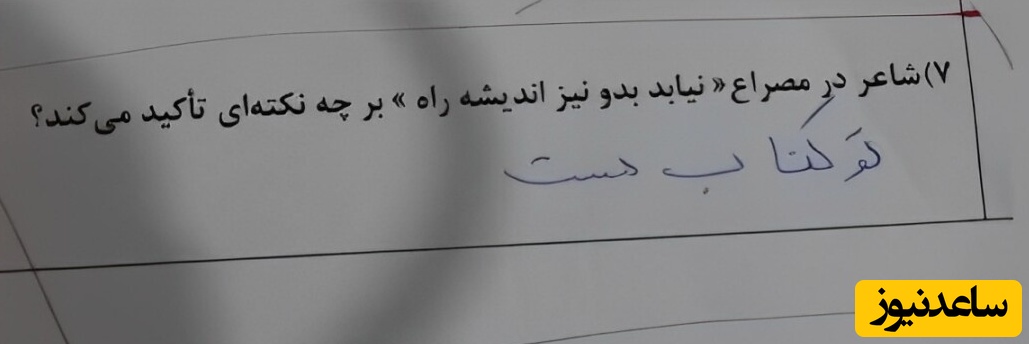 ۷)شاعر در مصراع « نیابد بدو نیز اندیشه راه » بر چه نکته‌ای تأکید می‌کند؟
تو کتاب هست
ساعدنیوز